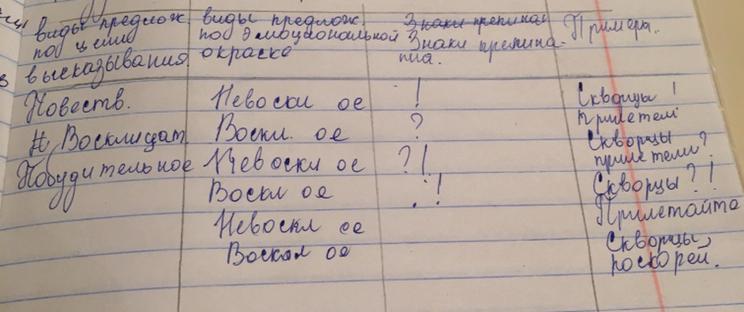 виды предлож виды предлож. Знаки препинан Примеры.
по цели по эмоциональной Знаки препина-
высказывания окраске ния.
Повеств. Невоскл ое ! Скворцы !
Н, Восклицат Воскл. ое ? Прилетели
Побудительное Невоскл ое ?! Скворцы
прилетели?
Воскл ое .! Скворцы?!
Невоскл ое Прилетайте
Воскол ое Скворцы,
поскорей.